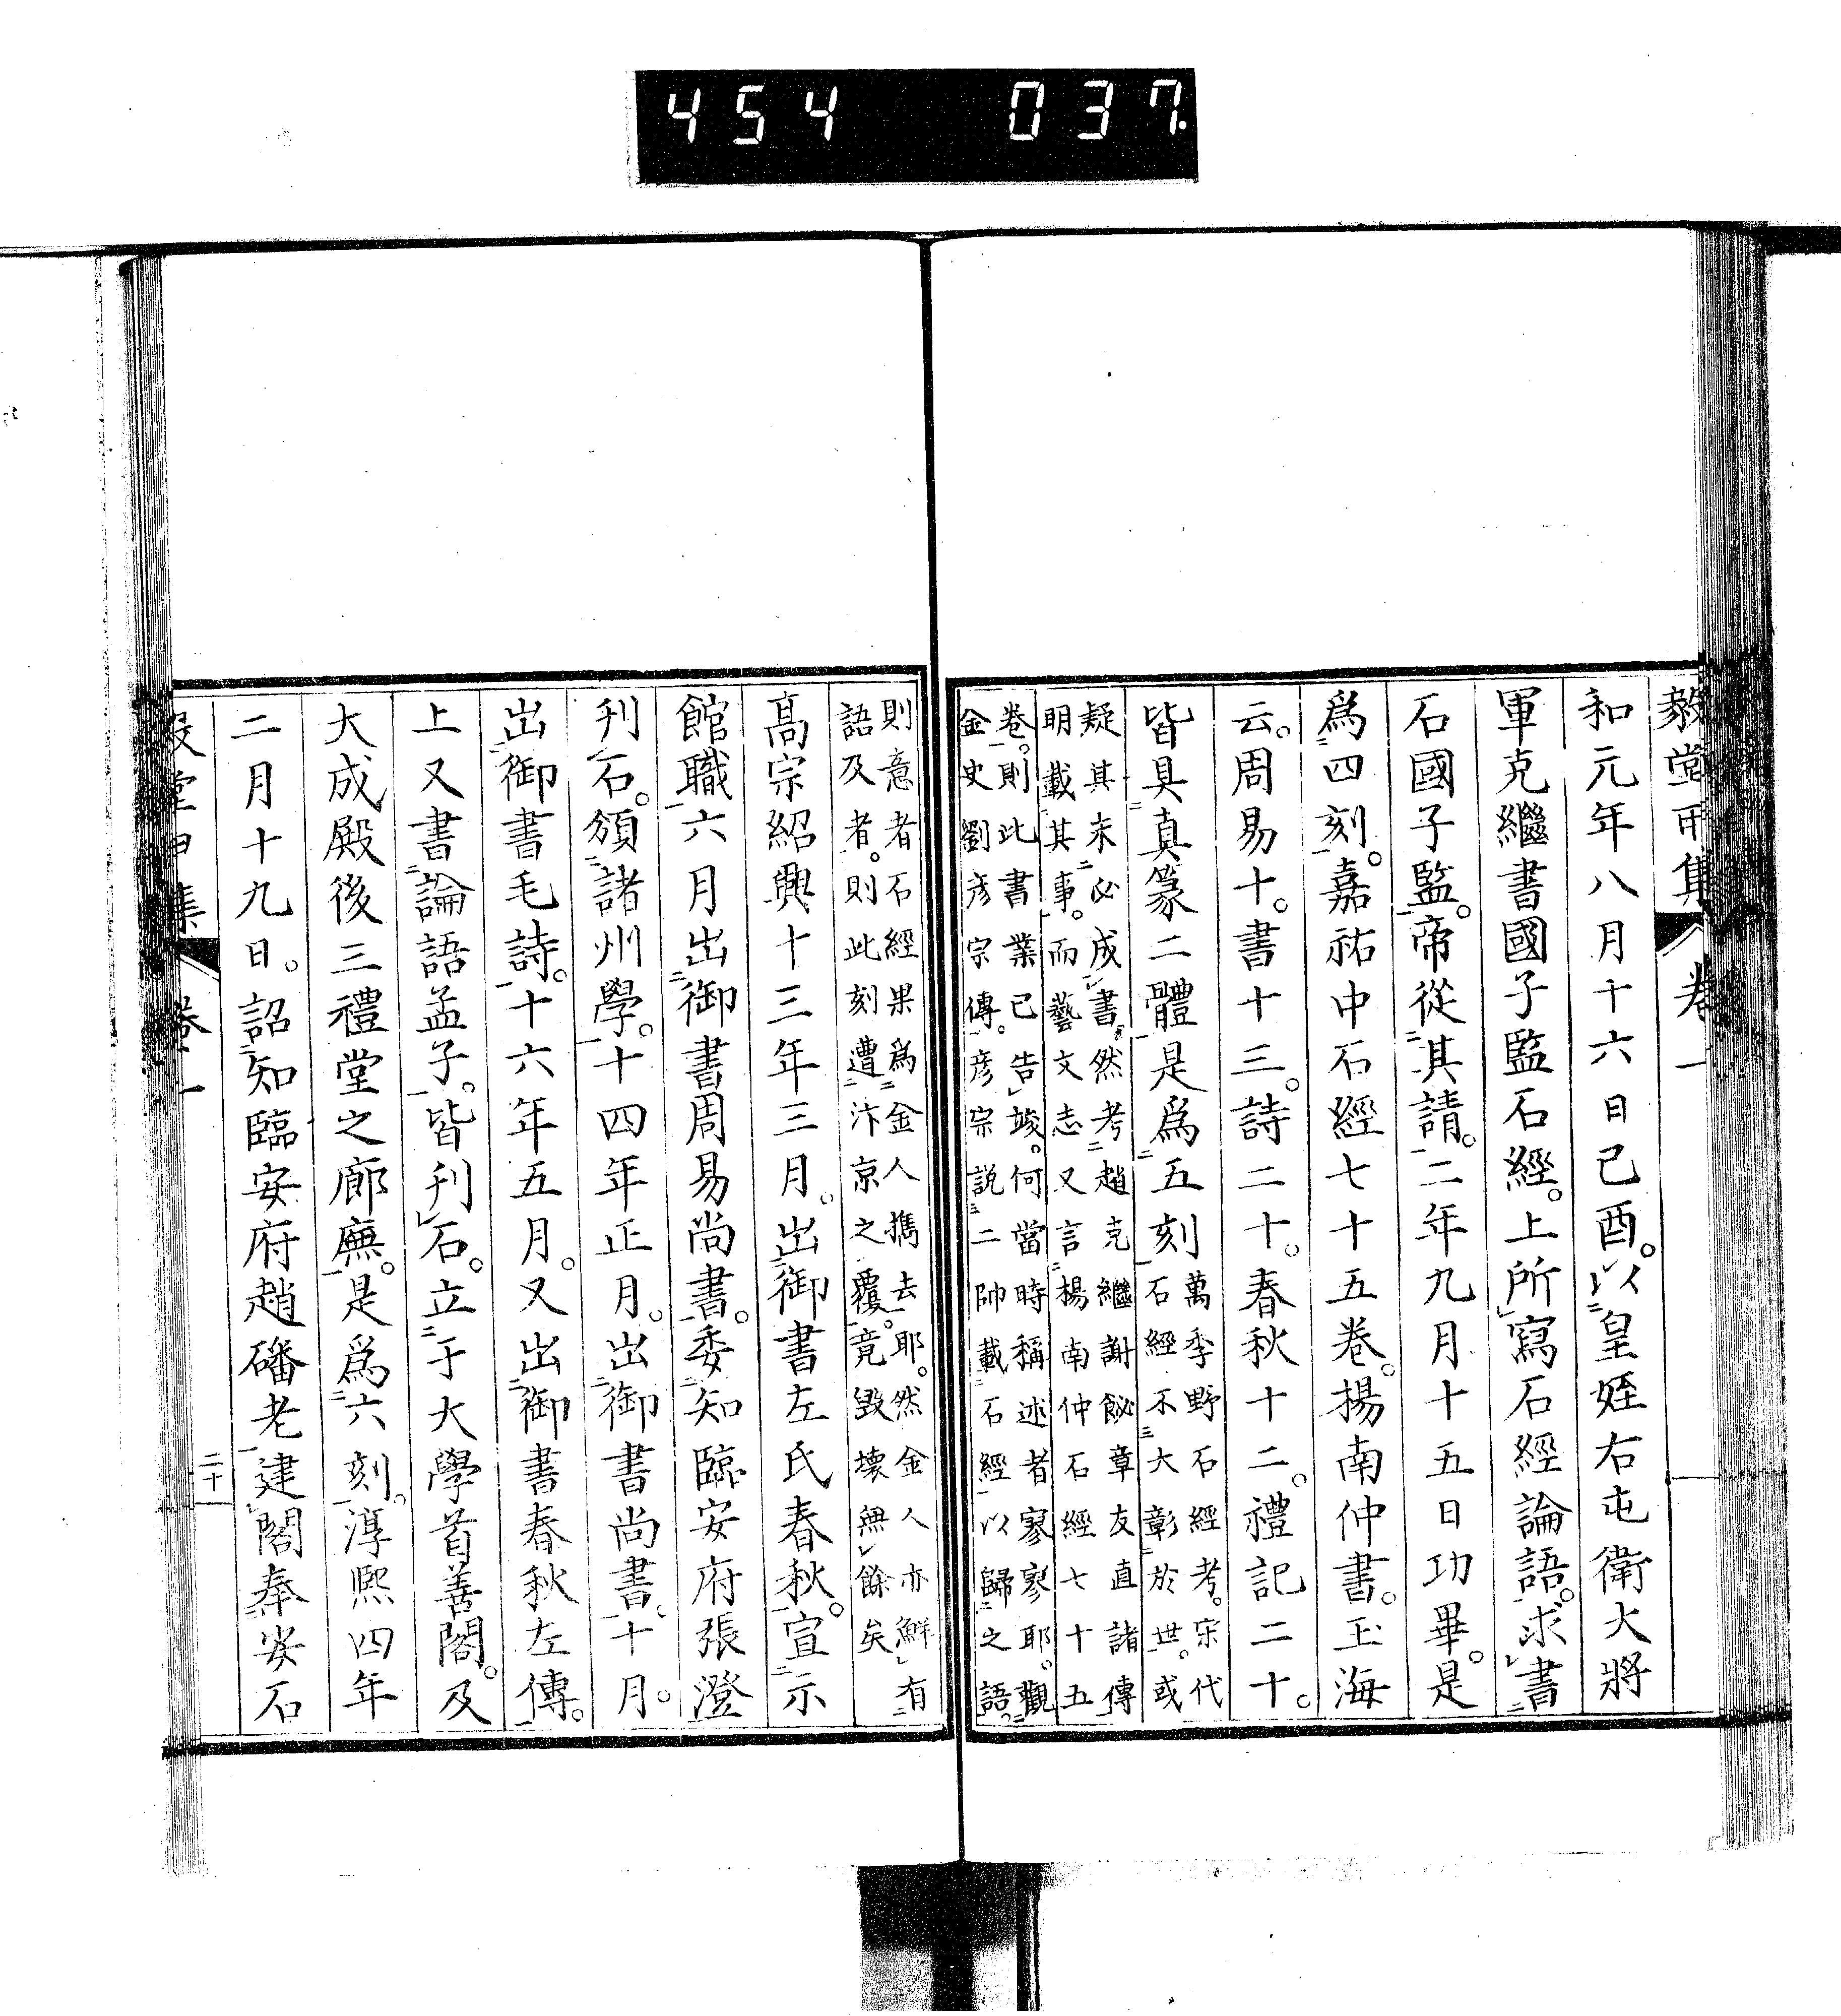 454 037.
和元年八月十六日己酉。以皇姪右屯衛大將
軍克繼書國子監石經。上所寫石經論語。求書
石國子監。帝從其請。二年九月十五日功畢。是
爲四刻。嘉祐中石經七十五卷。楊南仲書。玉海
云。周易十。書十三。詩二十。春秋十二。禮記二十。
皆具真篆二體是爲五刻
萬季野石經考。宋代
石經不大彰於世。或
疑其未必成書。然考趙克繼謝飶章友直諸傳
明載其事。而藝文志又言楊南仲石經七十五
卷。則此書業已告竣。何當時稱述者寥寥耶。觀
金史劉彦宗傳。彦宗説二帥載石經以歸之語。
則意者石經果爲金人攜去耶。然金人亦鮮有
語及者。則此刻遭汴京之覆。竟毀壞無餘矣
高宗紹興十三年三月。出御書左氏春秋。宣示
館職六月出御書周易尚書。委知臨安府張澄
刊石。頒諸州學。十四年正月。出御書尚書。十月。
出御書毛詩。十六年五月。又出御書春秋左傳。
上又書論語孟子。皆刊石。立于大學首善閣。及
大成殿後三禮堂之廊廡。是爲六刻。淳熙四年
二月十九日。詔知臨安府趙磻老建閣奉安石
二十